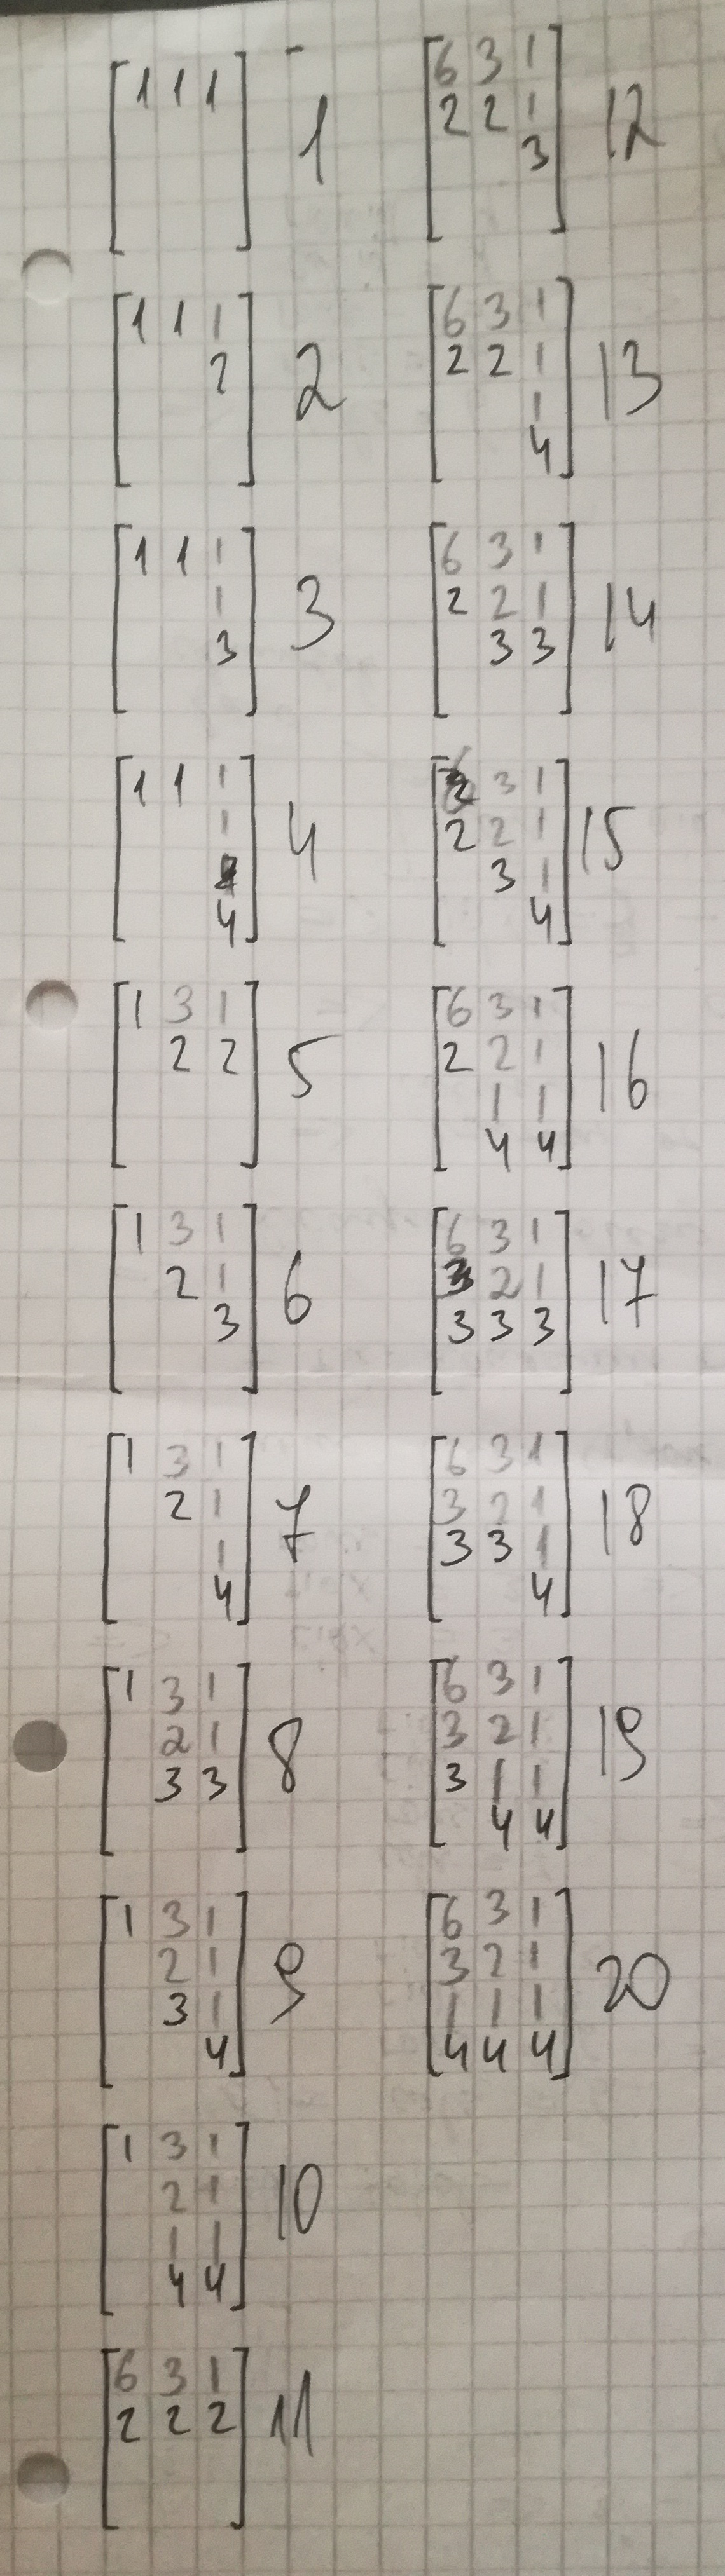 1 1 1
1
1 1 1
2
2
1 1 1
1
3
3
1 1 1
1
4
4
1 3 1
2 2
5
1 3 1
2 1
3
6
1 3 1
2 1
1
4
7
1 3 1
2 1
3 3
8
1 3 1
2 1
3 1
4
9
1 3 1
2 1
1 1
4 4
10
6 3 1
2 2 2
11
6 3 1
2 2 1
3
12
6 3 1
2 2 1
1
4
13
6 3 1
2 2 1
3 3
14
3 1
2 2 1
3 1
4
15
6 3 1
2 2 1
1 1
4 4
16
6 3 1
2 1
3 3 3
17
6 3 1
3 2 1
3 3 1
4
18
6 3 1
3 2 1
3 1 1
4 4
19
6 3 1
3 2 1
1 1 1
4 4 4
20